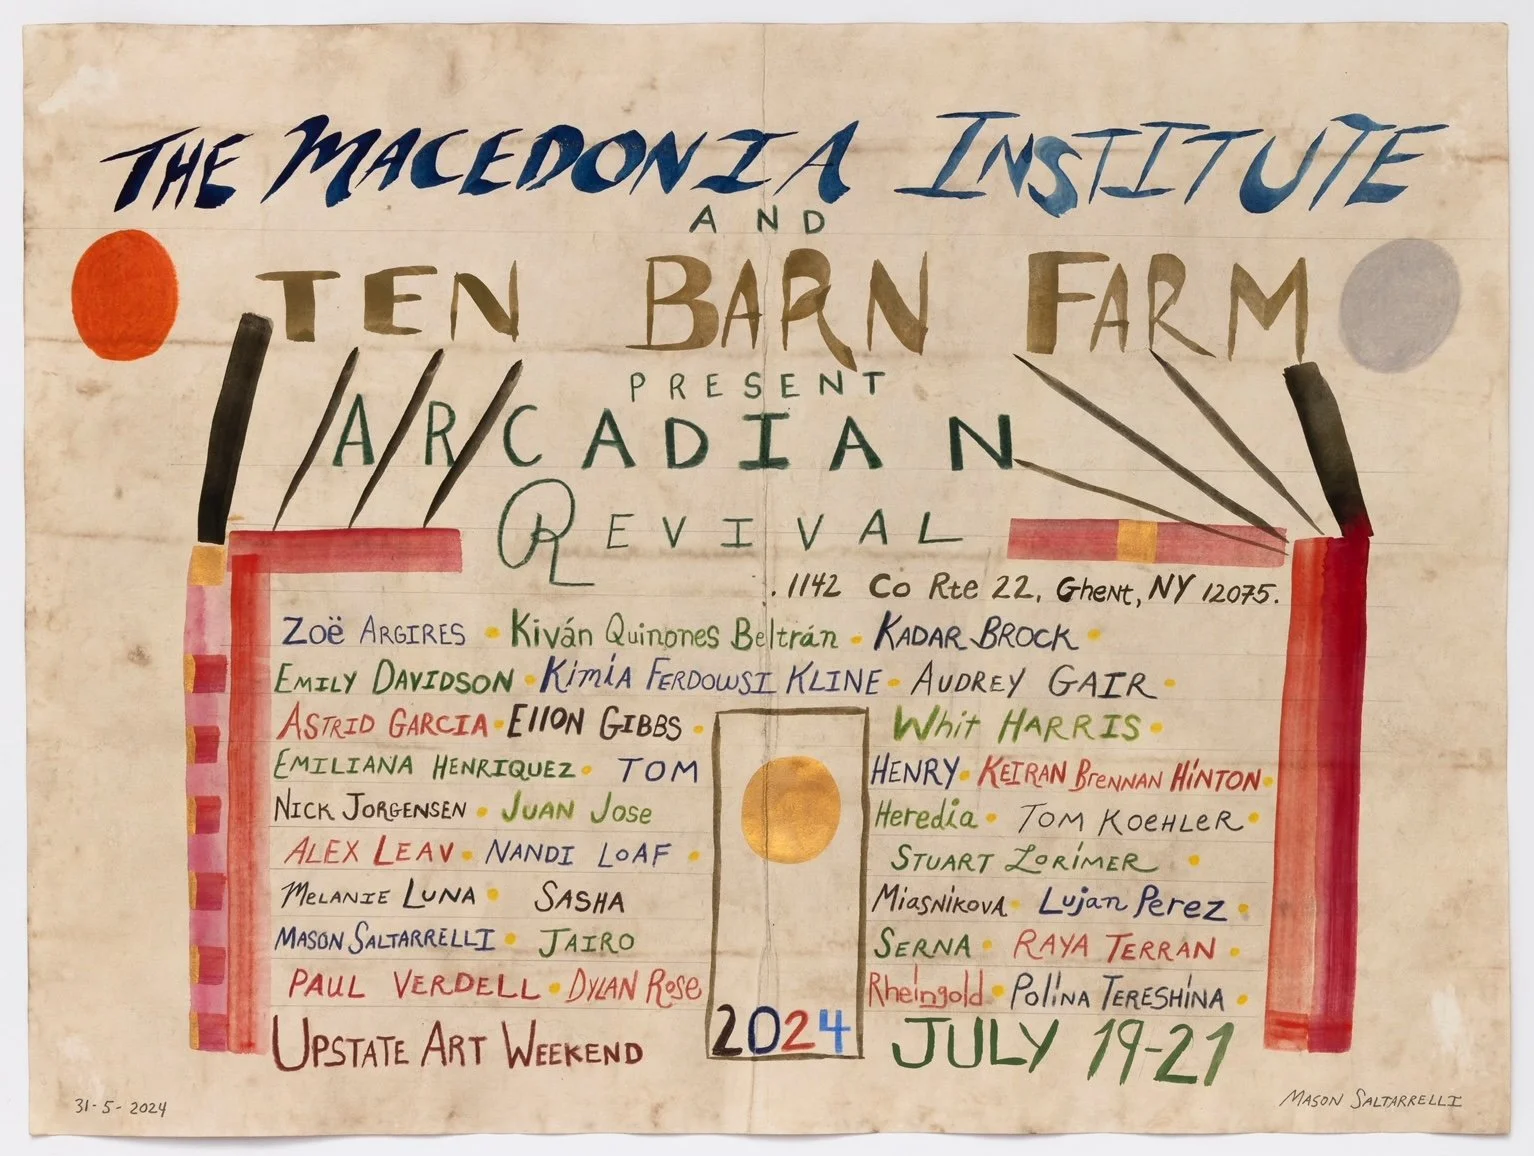 THE MACEDONIA INSTITUTE
AND
TEN BARN FARM
PRESENT
ARCADIAN
REVIVAL
. 1142 Co Rte 22, Ghent, NY 12075.
Zoë ARGIRES • Kiván Quinones Beltrán • KADAR BROCK •
EMILY DAVIDSON • Kimia FERDOWSI KLINE • AUDREY GAIR •
ASTRID GARCIA • EllON GIBBS • Whit HARRIS •
EMILIANA HENRIQUEZ • TOM HENRY • KEIRAN Brennan HINTON •
NICK JORGENSEN • JUAN Jose Heredia • TOM KOEHLER •
ALEX LEAV • NANDI LOAF • STUART LORIMER •
MELANIE LUNA • SASHA Miasnikova • Lujan Perez •
MASON SALTARRELLI • JAIRO SERNA • RAYA TERRAN •
PAUL VERDELL • DYLAN Rose Rheingold • POLINA TERESHINA •
UPSTATE ART WEEKEND 2024 JULY 19-21
31-5-2024 MASON SALTARRELLI